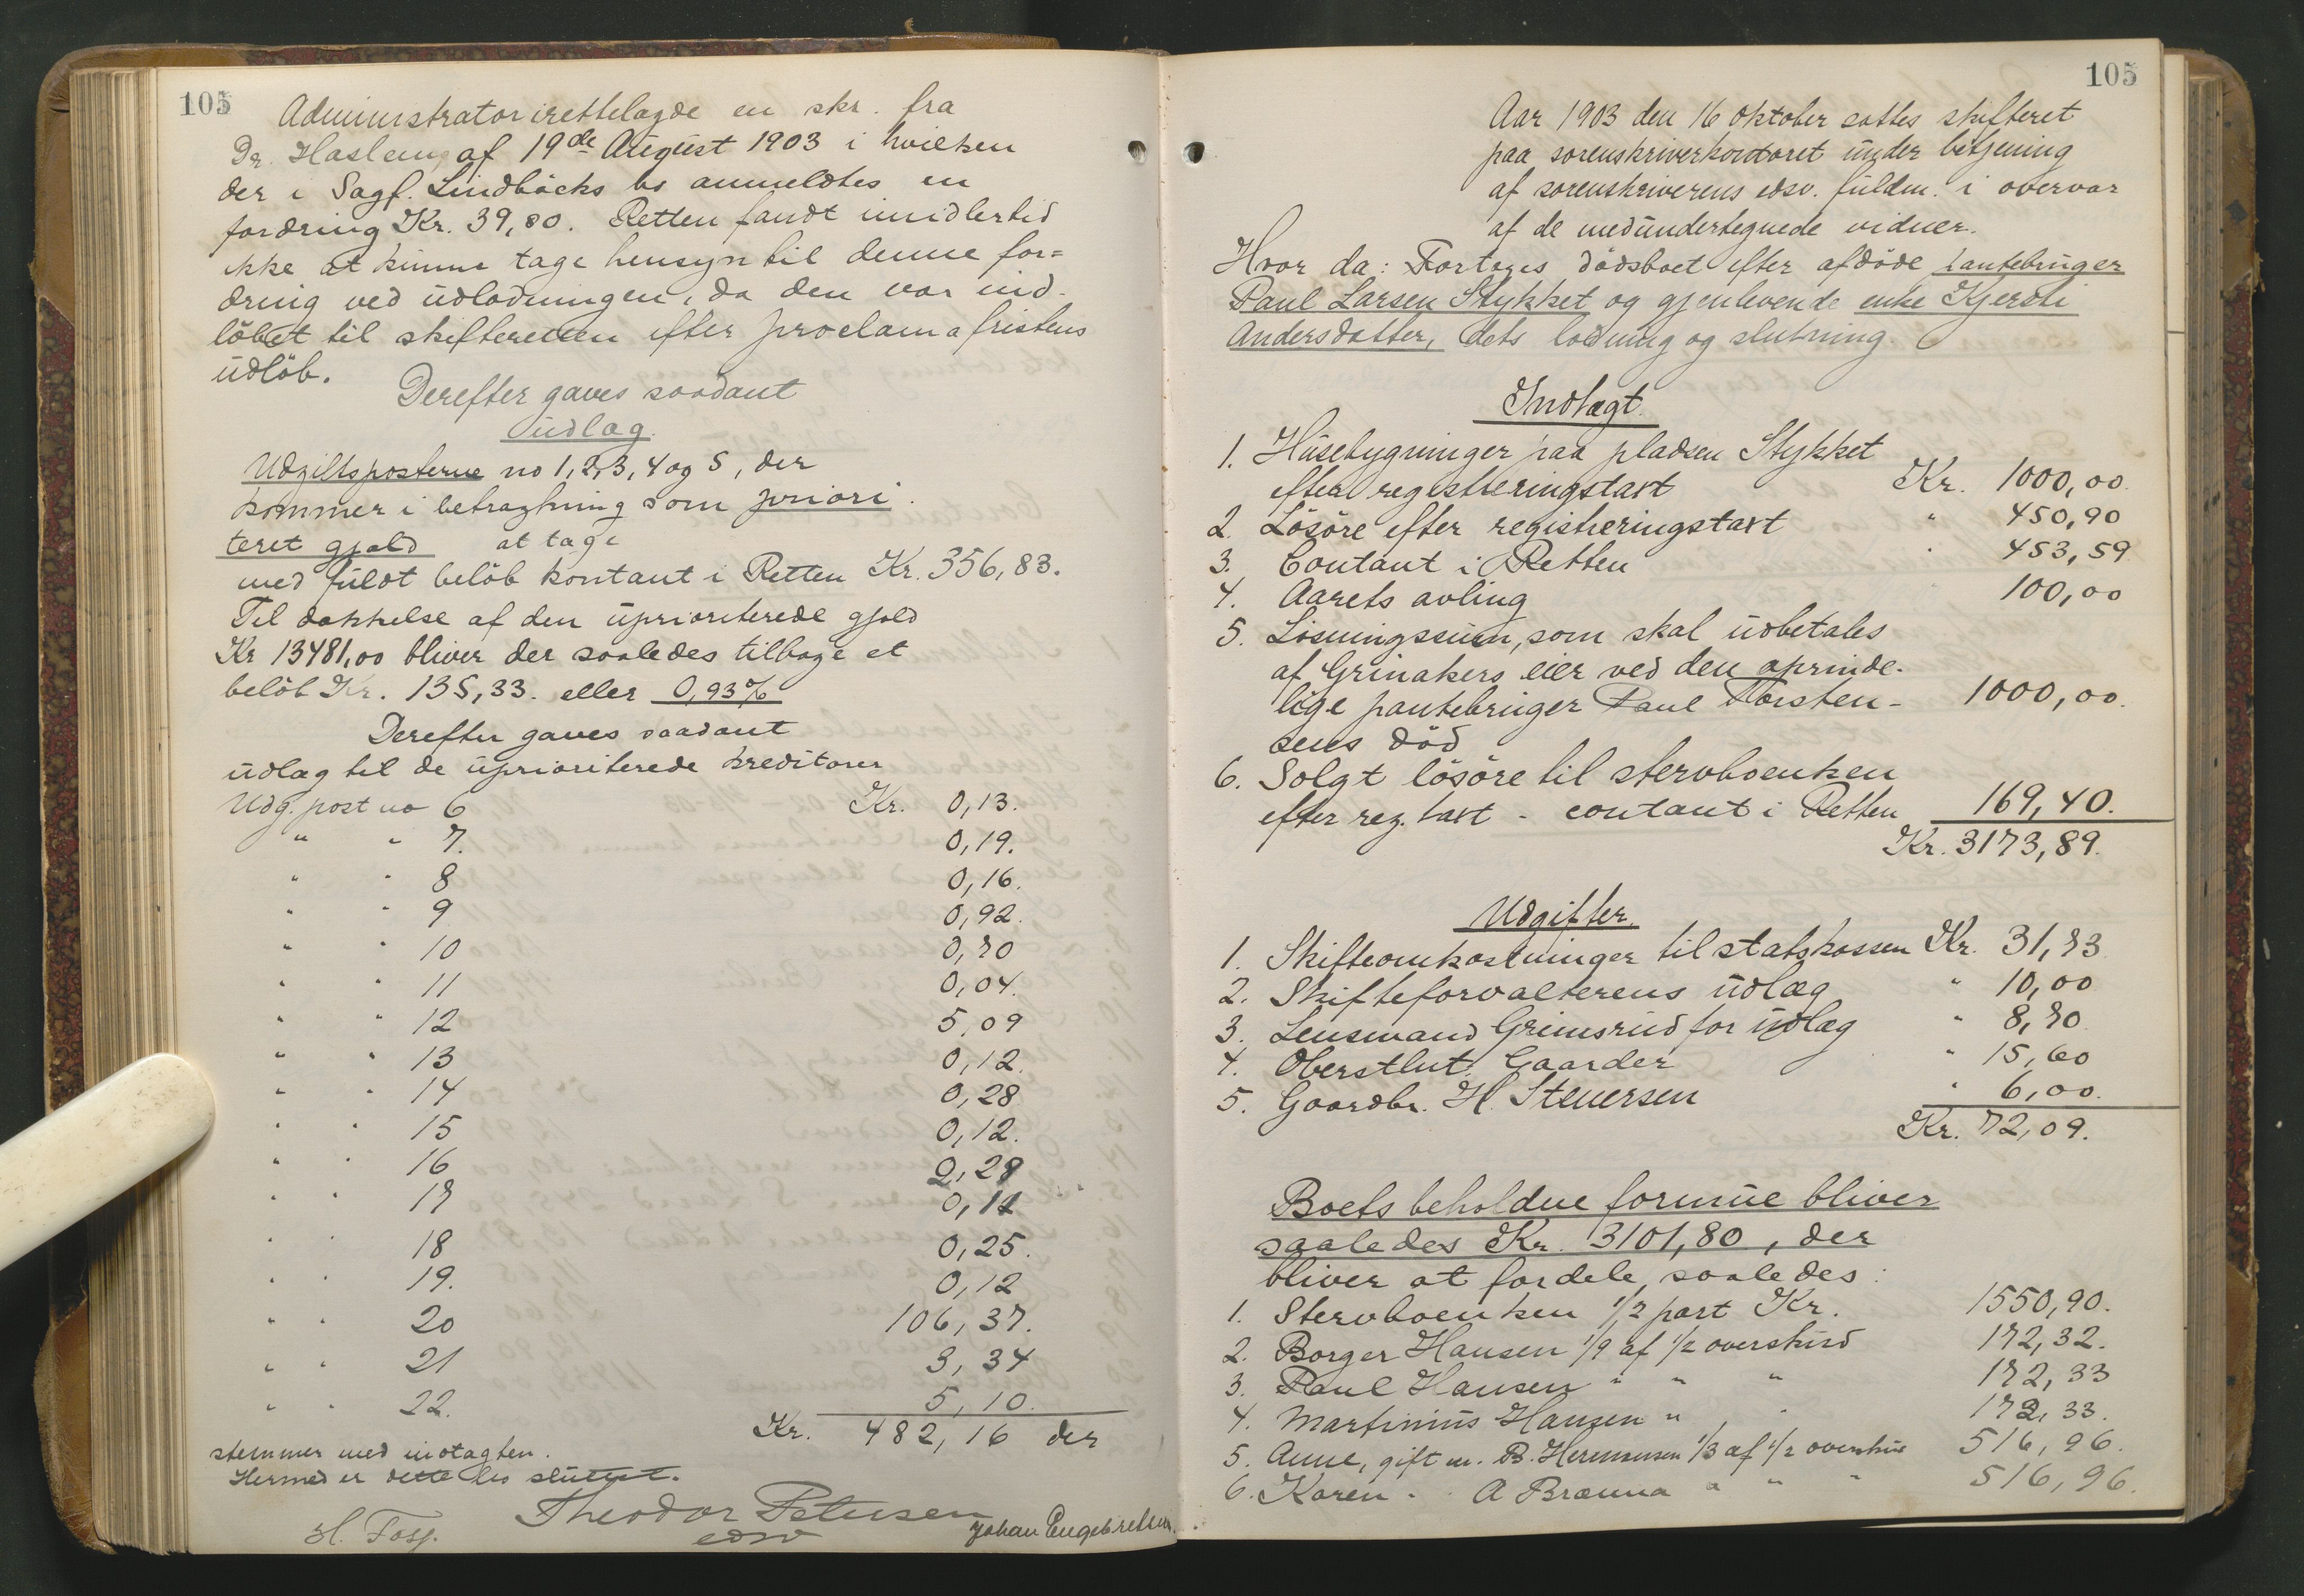 105
Administrator irettelagde en skr. fra
Dr. Haslem af 19de August 1903 i hvilken
der i Sagf. Lindbäcks bo anmeldtes en
fordring Kr. 39,80. Retten fandt imidlertid
ikke at kunne tage hensyn til denne for=
dring ved udlodningen, da den var ind-
löbet til skifteretten efter proclamafristens
udlöb.
Derefter gaves saadant
udlæg.
Udgiftsposterne no 1, 2, 3, 4 og 5, der
kommer i betragtning som priori
teret gjæld at tage
med fuldt belöb kontant i Retten Kr. 356,83.
Til dækkelse af den uprioriterede gjæld
Kr 13481,00 bliver der saaledes tilbage et
belöb Kr. 135,33. eller 0,93%
Derefter gaves saadant
udlæg til de uprioriterede kreditorer
Udg. post no 6 Kr. 0,13.
" " 7. 0,19.
" " 8 0,16.
" " 9 0,92.
" " 10 0,70
" " 11 0,04.
" " 12 5,09
" " 13 0,12.
" " 14 0,28
" " 15 0,12.
" " 16 2,28
" " 17 0,11
" " 18 0,25.
" " 19. 0,12
" " 20 106,37.
" " 21 3,34
" " 22. 5,10.
Kr. 482,16 der
stemmer med indtægten.
Hermed er dette bo sluttet.
Theodor Petersen
edsv
H. Foss. Johan Engebretsen.
105
Aar 1903 den 16 Oktober sattes skifteret
paa sorenskriverkontoret under betjening
af sorenskriverens edsv. fuldm. i overvær
af de medundertegnede vidner.
Hvor da: Fortoges dödsboet efter afdöde pantebruger
Paul Larsen Stykket og gjenlevende enke Kjersti
Andersdatter, dets lodning og slutning.
Indtægt.
1. Husebygninger paa pladsen Stykket
efter registreringstaxt Kr. 1000,00
2. Lösöre efter registreringstaxt " 450,90
3. Contant i Retten " 453,59
4. Aarets avling 100,00
5. Lösningssum, som skal udbetales
af Grinakers eier ved den oprinde-
lige pantebruger Paul Torsten- 1000,00.
sens död
6. Solgt lösöre til stervboenken
efter reg. taxt - contant i Retten 169,40.
Kr. 3173,89.
Udgifter.
1. Skifteomkostninger til statskassen Kr. 31,73
2. Skifteforvalterens udlæg " 10,00
3. Lensmand Grimsrud for udlæg " 8,70
4. Oberstlnt. Gaarder " 15,60
5. Gaardbr. H. Steuersen " 6,00.
Kr. 72,09.
Boets beholdne formue bliver
saaledes Kr. 3101,80, der
bliver at fordele saaledes:
1. Stervboenken 1/2 part Kr. 1550,90.
2. Borger Hansen 1/9 af 1/2 overskud 172,32.
3. Paul Hansen " " " 172,33
4. Martinius Hansen " " " 172,33.
5. Anne, gift m. B. Hermansen 1/3 af 1/2 overskud 516,96.
6. Karen " A Brænna " " " 516,96.